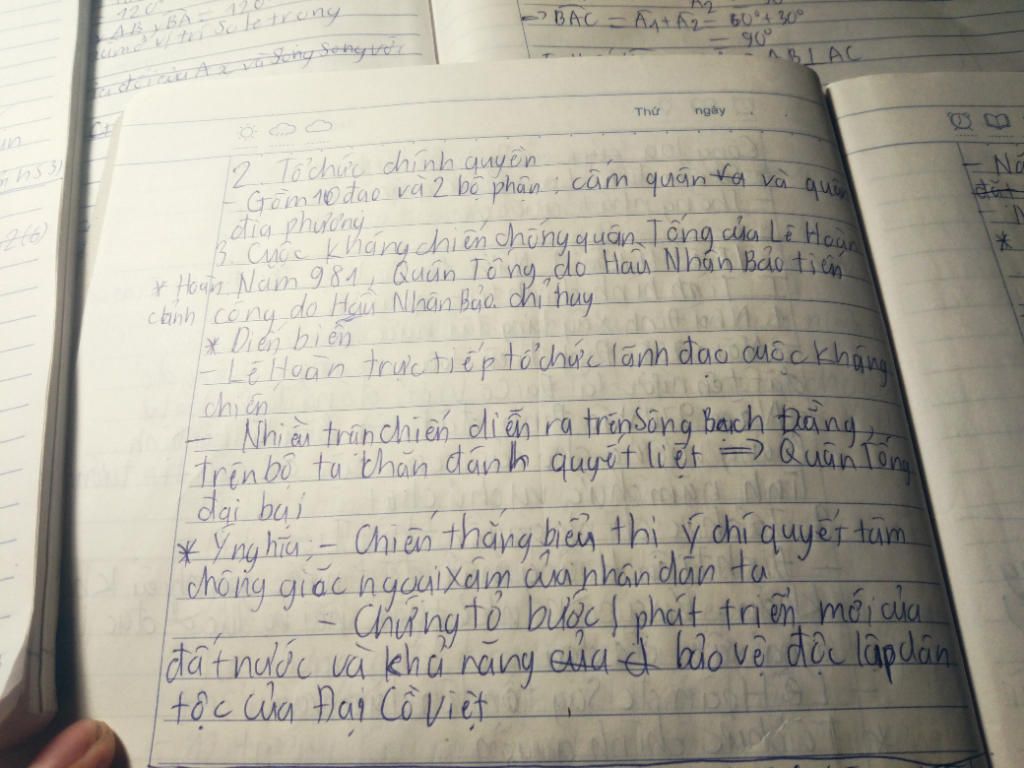 120°
AB, BA = 120°
vị trí so le trong
và song song với
=> BAC = A1 + A2 = 60° + 30°
= 90°
AB ⊥ AC
Thứ ngày
2. Tổ chức chính quyền
- Gồm 10 đạo và 2 bộ phận: cấm quân và quân
địa phương
3. Cuộc kháng chiến chống quân Tống của Lê Hoàn
* Hoàn Năm 981, Quân Tống do Hầu Nhân Bảo tiến
cảnh công do Hầu Nhân Bảo chỉ huy
* Diễn biến
- Lê Hoàn trực tiếp tổ chức lãnh đạo cuộc kháng
chiến
- Nhiều trận chiến diễn ra trên sông Bạch Đằng,
trên bộ ta chặn đánh quyết liệt => Quân Tống
đại bại
* Ý nghĩa: - Chiến thắng biểu thị ý chí quyết tâm
chống giặc ngoại xâm của nhân dân ta
- Chứng tỏ bước phát triển mới của
đất nước và khả năng của bảo vệ độc lập dân
tộc của Đại Cồ Việt